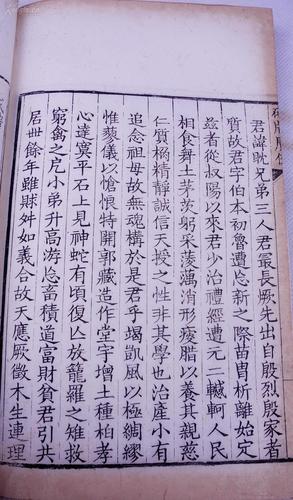 君諱耽兄弟三人君最長厥先出自殷烈殷家者
質故君字伯本初魯遭忿新之際苗冑析離始定
兹者從叔陽以來君少治禮經遭元二轗軻人民
相食舞土茅茨躬采蔆藕消形瘦脂以養其親慈
仁質桷精靜誠信天授之性非其學也治產小有
追念祖母故無魂構於是君乎竭凱風以極綢繆
惟蓼儀以愴悢特開郭藏造作堂宇增土種柏孝
心達冥平石上見神蛇有頃復亾放籠羅之雉救
窮禽之戹小弟升高游惢畜積道富財貧君引共
居世餘年雖財舛如義合故天應厥徵木生連理